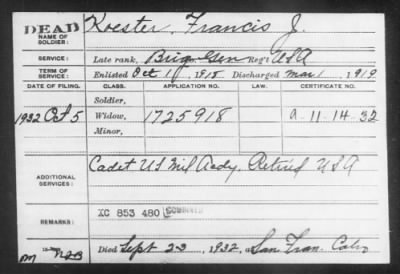 DEAD
NAME OF SOLDIER: Koester, Francis J.
SERVICE: Late rank, Brig-Gen Reg't USA
TERM OF SERVICE: Enlisted Oct 1, 1918 Discharged Mar 1, 1919
DATE OF FILING. CLASS. APPLICATION NO. LAW. CERTIFICATE NO.
Soldier,
1932 Oct 5 Widow, 1725918 A-11-14-32
Minor,
ADDITIONAL SERVICES: Cadet US Mil Acdy. Retired USA
REMARKS: XC 853 480 COMBINED
Died Sept 23, 1932, at San Fran. Calif